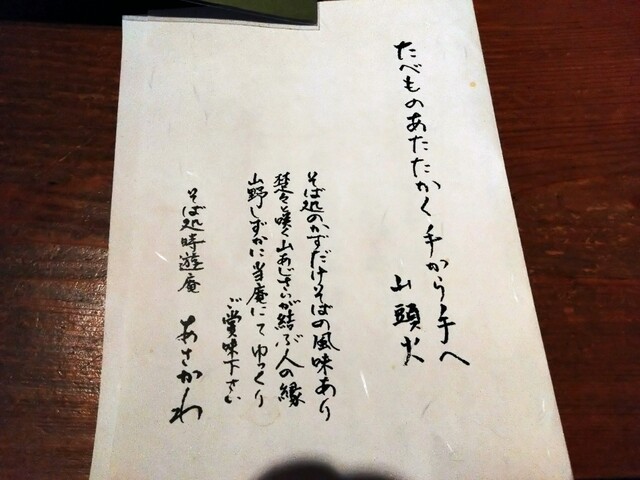 たべものあたたかく手から手へ
山頭火
そば処のかずだけそばの風味あり
楚々と咲く山あじさいが結ぶ人の縁
山野しずかに当庵にてゆっくり
ご賞味下さい
そば処時遊庵 あさかわ